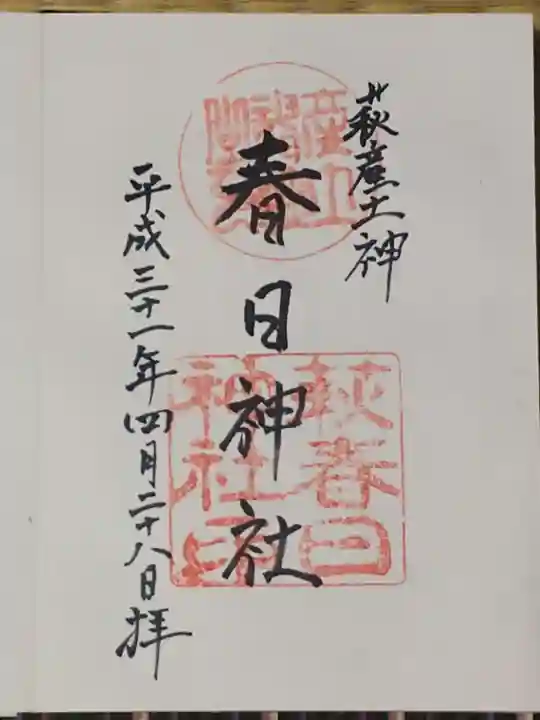 萩産土神
春日神社
平成三十一年四月二十八日拝
萩春日
神社